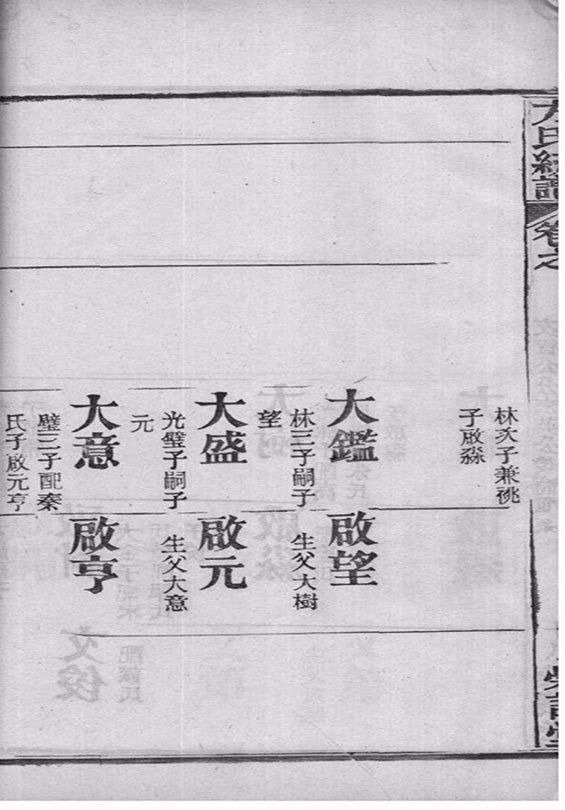 方氏統譜 卷之
林次子兼祧
子啟淼
大鑑
林三子嗣子
望
啟望
生父大樹
大盛
光璧子嗣子
元
啟元
生父大意
大意
璧三子配秦
氏子啟元亨
啟亨